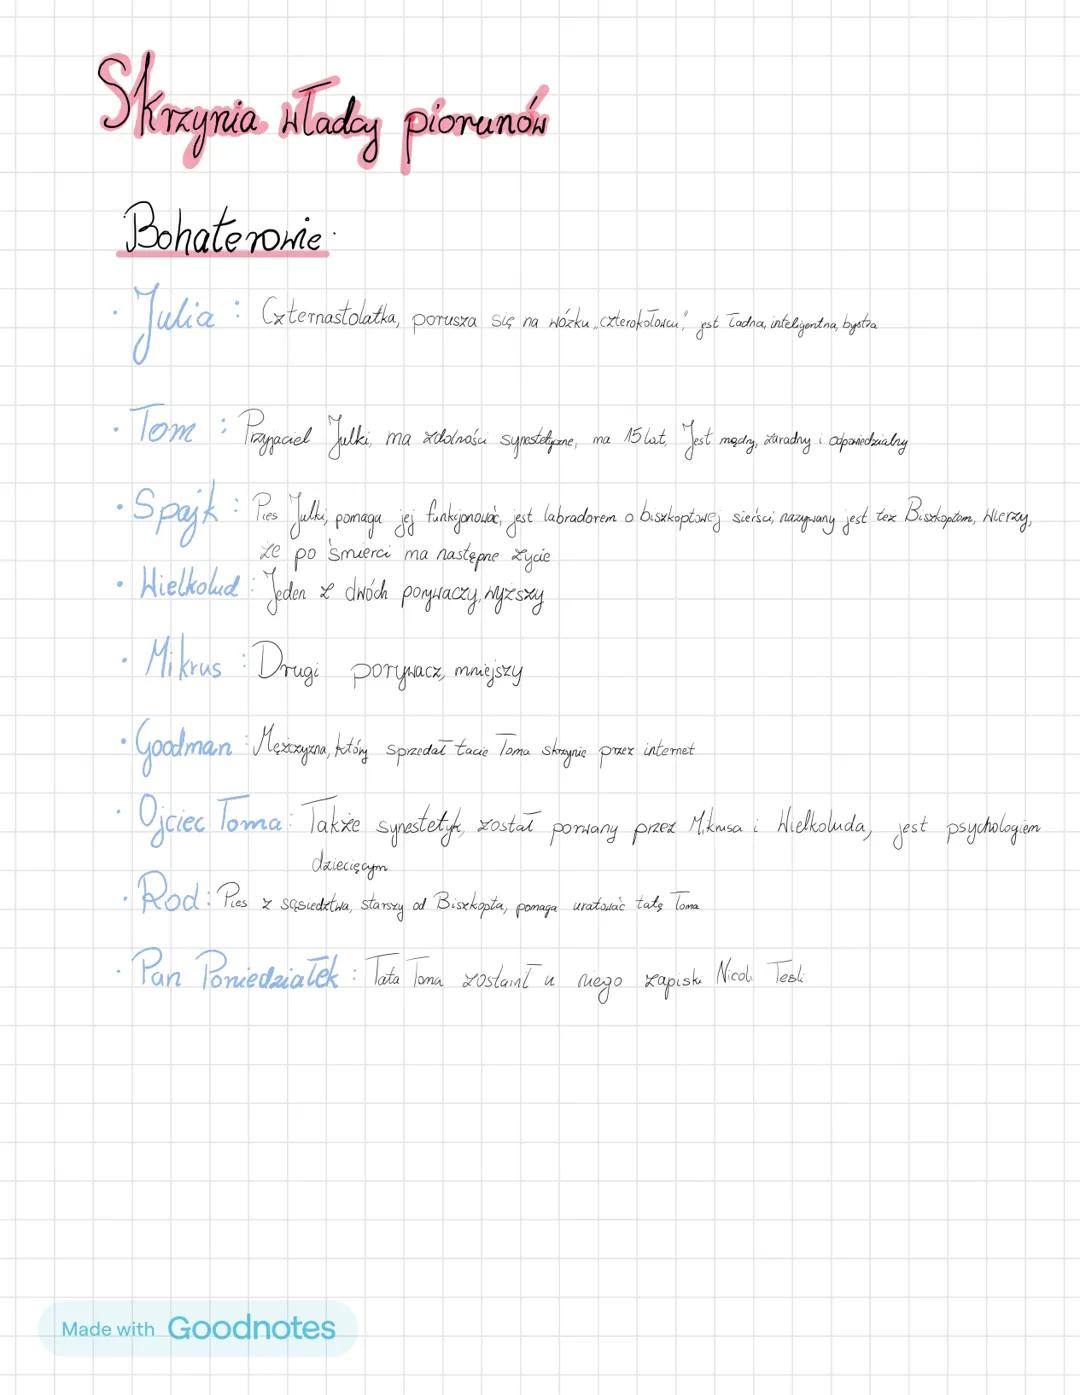 Skrzynia władcy piorunów
Bohaterowie
· Julia: Czternastolatka, porusza się na wózku „czterokołowcu", jest ładna, inteligentna, bystra
· Tom: Przyjaciel Julki, ma zdolności synestetyczne, ma 15 lat, Jest mądry, zaradny i odpowiedzialny
· Spajk: Pies Julki, pomaga jej funkcjonować, jest labradorem o biszkoptowej sierści, nazywany jest też Biszkoptem, wierzy,
że po śmierci ma następne życie
· Wielkolud: Jeden z dwóch porywaczy, wyższy
· Mikrus: Drugi porywacz, mniejszy
· Goodman: Mężczyzna, który sprzedał tacie Toma skrzynię przez internet
· Ojciec Toma: Także synestetyk, został porwany przez Mikrusa i Wielkoluda, jest psychologiem
dziecięcym
· Rod: Pies z sąsiedztwa, starszy od Biszkopta, pomaga uratować tatę Toma
· Pan Poniedziałek: Tata Toma zostawił u niego zapiski Nicoli Tesli
Made with Goodnotes